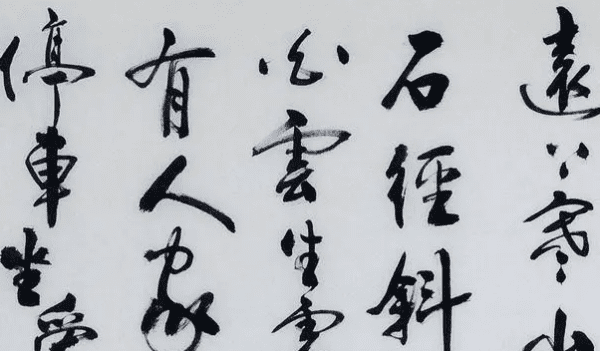 遠上寒山
石徑斜
白雲生處
有人家
停車坐愛